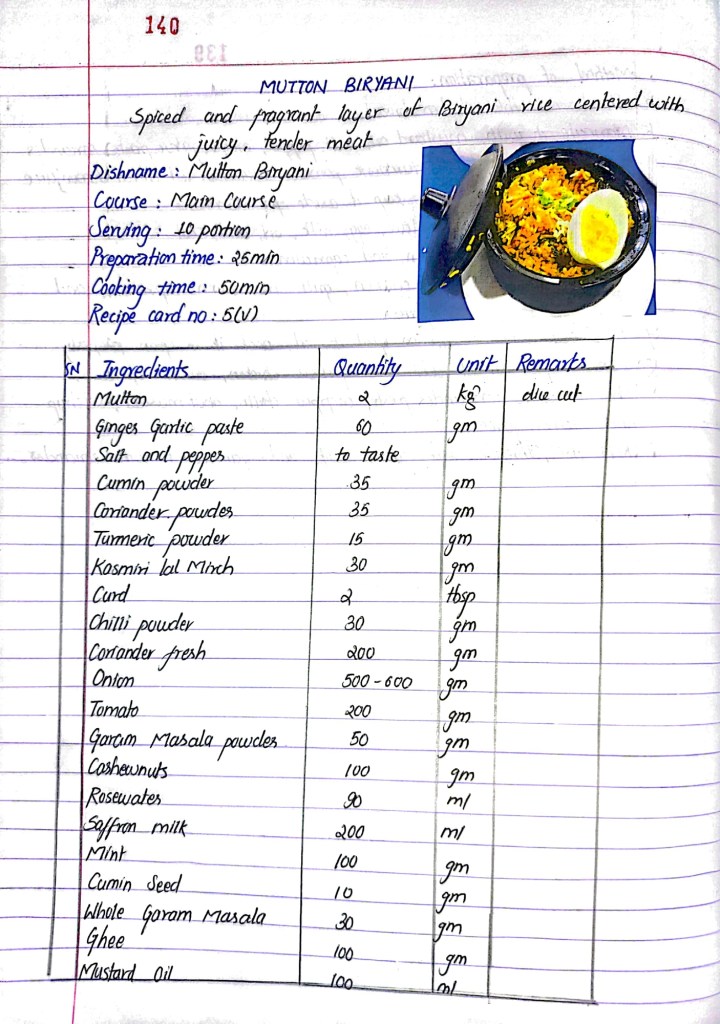 140
MUTTON BIRYANI
Spiced and fragrant layer of Biryani rice centered with
juicy, tender meat
Dishname : Mutton Biryani
Course : Main Course
Serving : 10 portion
Preparation time : 25min
Cooking time : 50min
Recipe card no : 5(V)
SN Ingredients Quantity Unit Remarks
Mutton 2 kg dice cut
Ginger Garlic paste 60 gm
Salt and pepper to taste
Cumin powder 35 gm
Coriander powder 35 gm
Turmeric powder 15 gm
Kasmiri lal Mirch 30 gm
Curd 2 tbsp
Chilli powder 30 gm
Coriander fresh 200 gm
Onion 500-600 gm
Tomato 200 gm
Garam Masala powder 50 gm
Cashewnuts 100 gm
Rosewater 90 ml
Saffron milk 200 ml
Mint 100 gm
Cumin Seed 10 gm
Whole Garam Masala 30 gm
Ghee 100 gm
Mustard Oil 100 ml